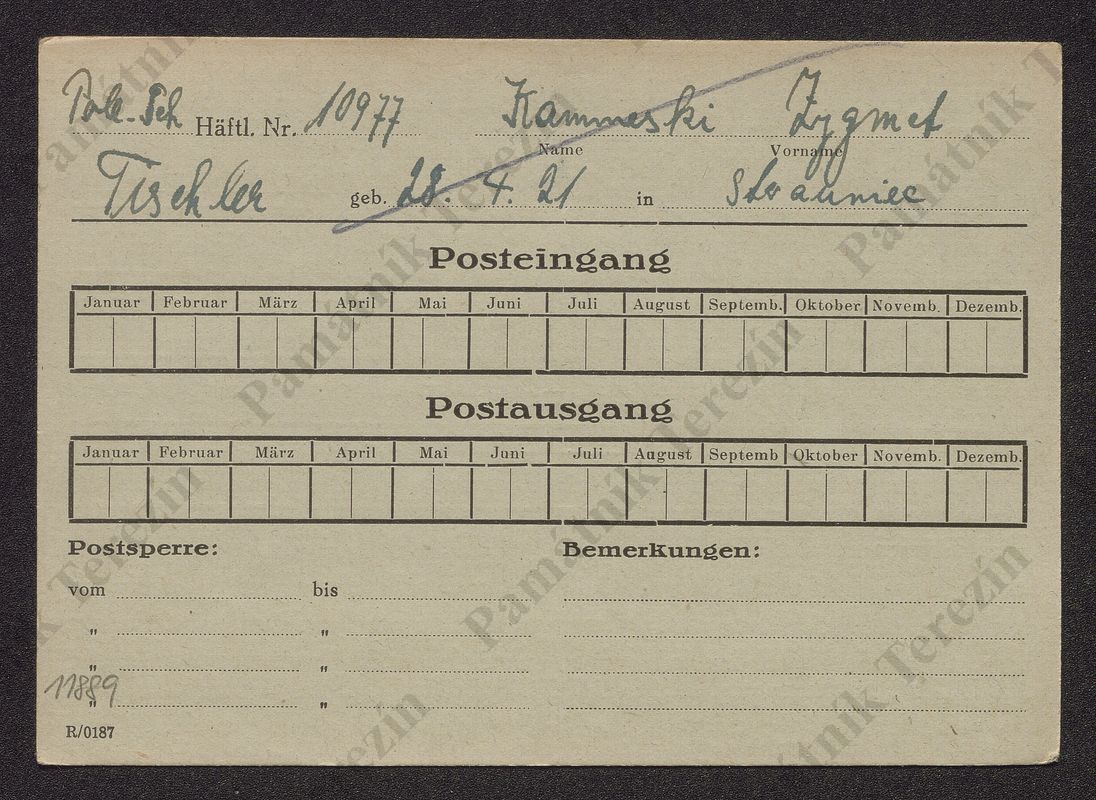 Pole-Sch Häftl. Nr. 10977 Kammeski Zygmet
Name Vorname
Tischler geb. 28. 4. 21 in
Posteingang
Januar Februar März April Mai Juni Juli August Septemb. Oktober Novemb. Dezemb.
Postausgang
Januar Februar März April Mai Juni Juli August Septemb Oktober Novemb. Dezemb.
Postsperre: Bemerkungen:
vom bis
" "
" "
11889
" "
R/0187
Památník Terezín